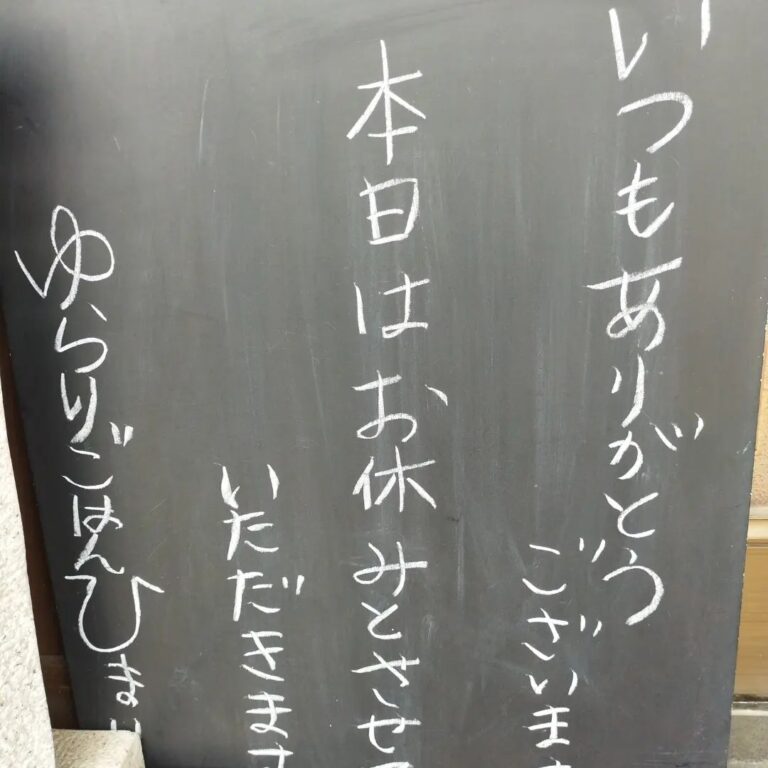 いつもありがとう
ございます
本日はお休みとさせて
いただきます
ゆらりごはんひまり